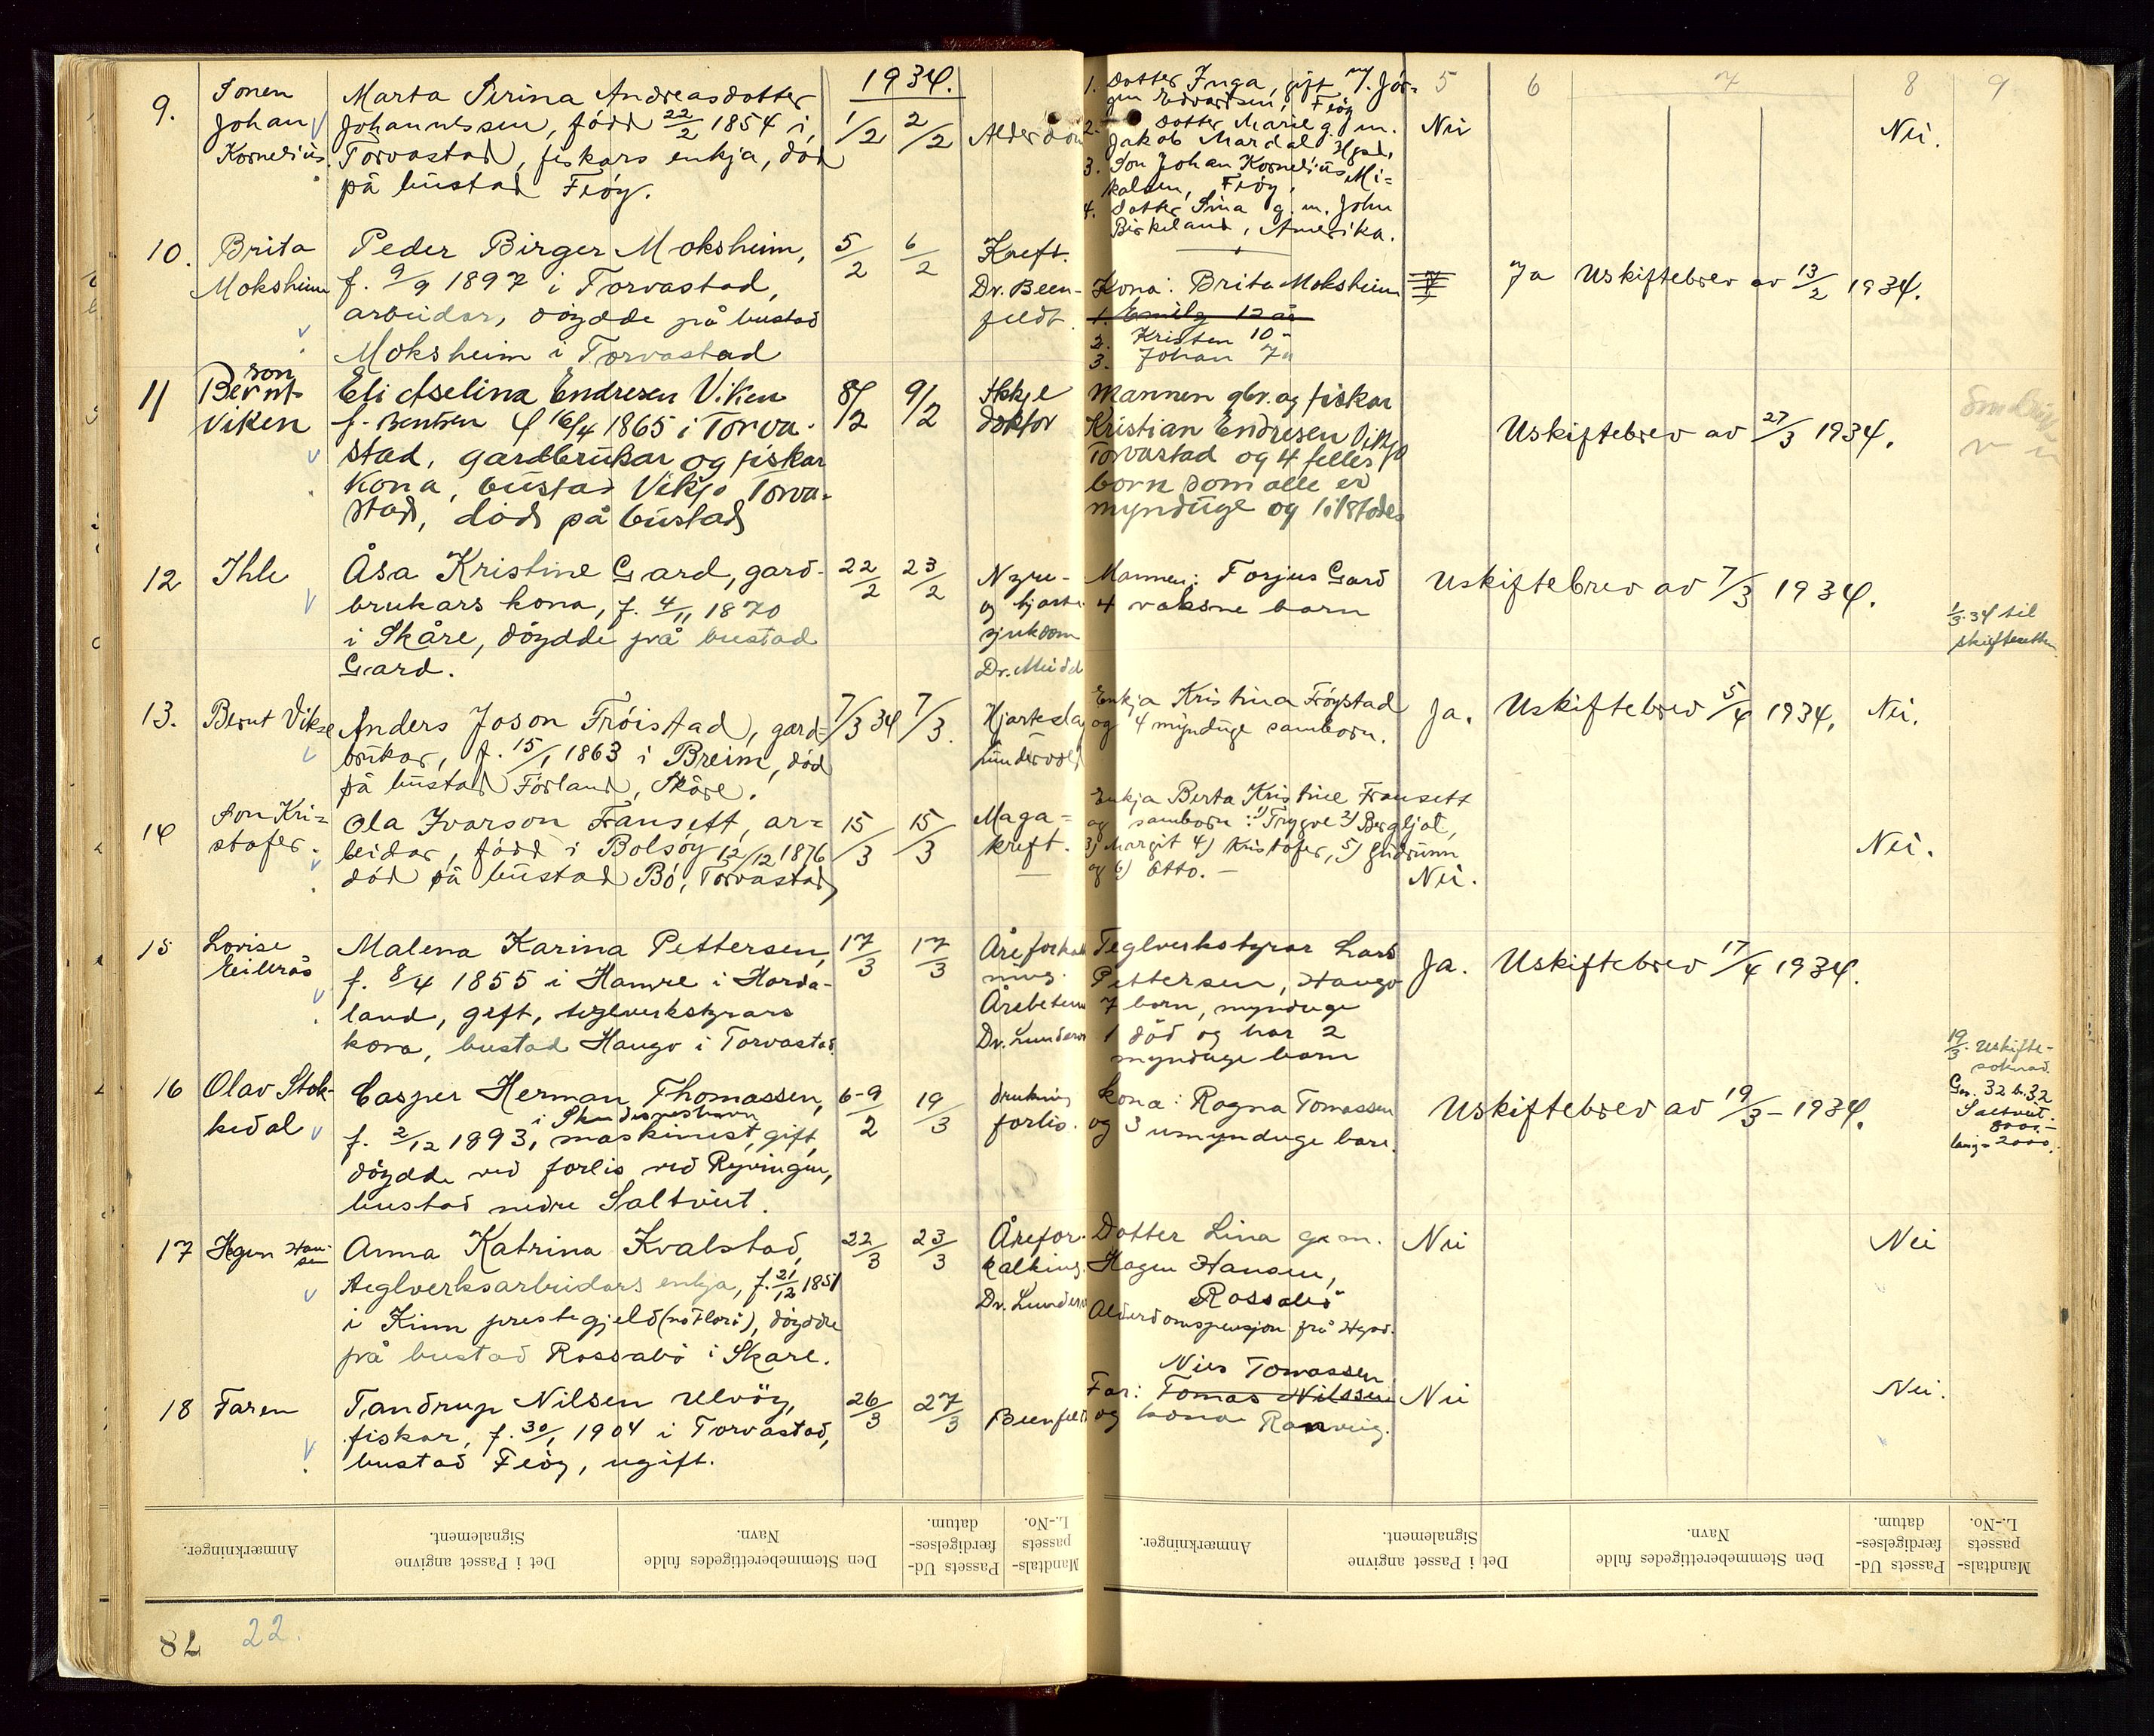 1934.
5 6 7 8 9
9. Sonen
Johan
Kornelius.
Marta Serina Andreasdotter
Johannessen, fødd 22/2 1854 i
Torvastad, fiskars enkja, død
på bustad Feøy.
1/2 2/2 Alderdom
1. Dotter Inga, gift m/ Jør-
gen Edvardsen, Feøy
2. Dotter Marie g. m.
Jakob Mardal Hgsd,
3. Son Johan Kornelius Mi-
kalsen, Feøy,
4. Dotter Sina g. m. John
Birkeland, Amerika.
Nei Nei.
10. Brita
Moksheim
Peder Birger Moksheim,
f. 9/9 1897 i Torvastad,
arbeidar, døydde på bustad
Moksheim i Torvastad
5/2 6/2 Kreft.
Dr. Been-
feldt.
Kona: Brita Moksheim
1. Emily 12 år
2. Kristen 10 "
3. Johan 7 "
Ja Uskiftebrev av 13/2 1934.
11 son
Bernt
Viken
Eli Aselina Endresen Viken
f. Bentsen f 16/4 1865 i Torva-
stad, gardbrukar og fiskar
kona, bustad Vikjo Torva-
stad, død på bustad
8/2 9/2 Ikkje
doktor
Mannen gbr. og fiskar
Kristian Endresen Vikjo
Torvastad og 4 felles
born som alle er
mynduge og tilstades
Uskiftebrev av 27/3 1934.
12 Ihle
Åsa Kristine Gard, gard-
brukars kona, f. 4/11 1870
i Skåre, døydde på bustad
Gard.
22/2 23/2 Nyre-
og hjarte
sjukdom
Dr. Meidd
Mannen: Torjus Gard
4 vaksne barn
Uskiftebrev av 7/3 1934.
1/3.34 til
skifteretten
13. Bernt Vikse
Anders Joson Frøistad, gard-
brukar, f. 15/1 1863 i Breim, død
på bustad Førland, Skåre.
7/3 34 7/3. Hjarteslag
Lundervold
Enkja Kristina Frøystad
og 4 mynduge samborn.
Ja. Uskiftebrev 5/4 1934. Nei.
14 Son Kri-
stofer.
Ola Ivarson Fransett, ar-
beidar, fødd i Bolsøy 12/12 1876
død på bustad Bø, Torvastad
15/3 15/3 Maga-
kreft.
Enkja Berta Kristine Fransett
og samborn: 1) Trygve 2) Bergljot,
3) Margit 4) Kristofer, 5) Gudrunn
og 6) Otto. —
Nei. Nei.
15 Lovise
Eilerås
Malena Karina Pettersen,
f. 8/4 1855 i Hamre i Horda-
land, gift, teglverkstyrars
kona, bustad Haugo i Torvastad.
17/3 17/3 Åreforkalk
ning.
Årebetenn
Dr. Lunderv
Teglverkstyrar Lars
Pettersen, Haugo
7 born, mynduge
1 død og har 2
mynduge barn
Ja. Uskiftebrev 17/4 1934.
16 Olav Stok-
kedal
Casper Herman Thomassen,
i Skudesneshavn
f. 2/12 1893, maskinist, gift,
døydde ved forlis ved Ryvingen,
bustad nedre Saltveit.
6-9/2 19/3 drukning
forlis.
Kona: Ragna Tomassen
og 3 umynduge born.
Uskiftebrev av 19/3 - 1934.
19/3. Uskifte-
søknad.
Gn. 32 b. 32
Saltveit.
8000.-
laus= 2000.-
17 Hagen Han-
sen
Anna Katrina Kvalstad,
Teglverksarbeidars enkja, f. 21/12 1851
i Kinn prestegjeld (nö Florö), døydde
på bustad Rossabø i Skare.
22/3 23/3 Årefor-
kalking.
Dr. Lunderv
Dotter Lina g. m.
Hagen Hansen,
Rossabø
Alderdomspensjon frå Hgsd.
Nei Nei
18 Faren
Tandrup Nilsen Ulvöy,
fiskar, f. 30/1 1904 i Torvastad,
bustad Feöy, ugift.
26/3 27/3 Beenfeldt
Nils Tomassen
Far: Tomas Nilssen
og kona Ranveig.
Nei Nei.
Anmærkninger.
Det i Passet angivne
Signalement.
Den Stemmeberettigedes fulde
Navn.
Passets Ud-
færdigelses-
datum.
Mandtals-
passets
L.-No.
Anmærkninger.
Det i Passet angivne
Signalement.
Den Stemmeberettigedes fulde
Navn.
Passets Ud-
færdigelses-
datum.
Mandtals-
passets
L.-No.
78 22.